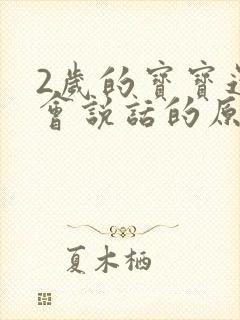 2歲的寶寶
會說話的原
夏木栖